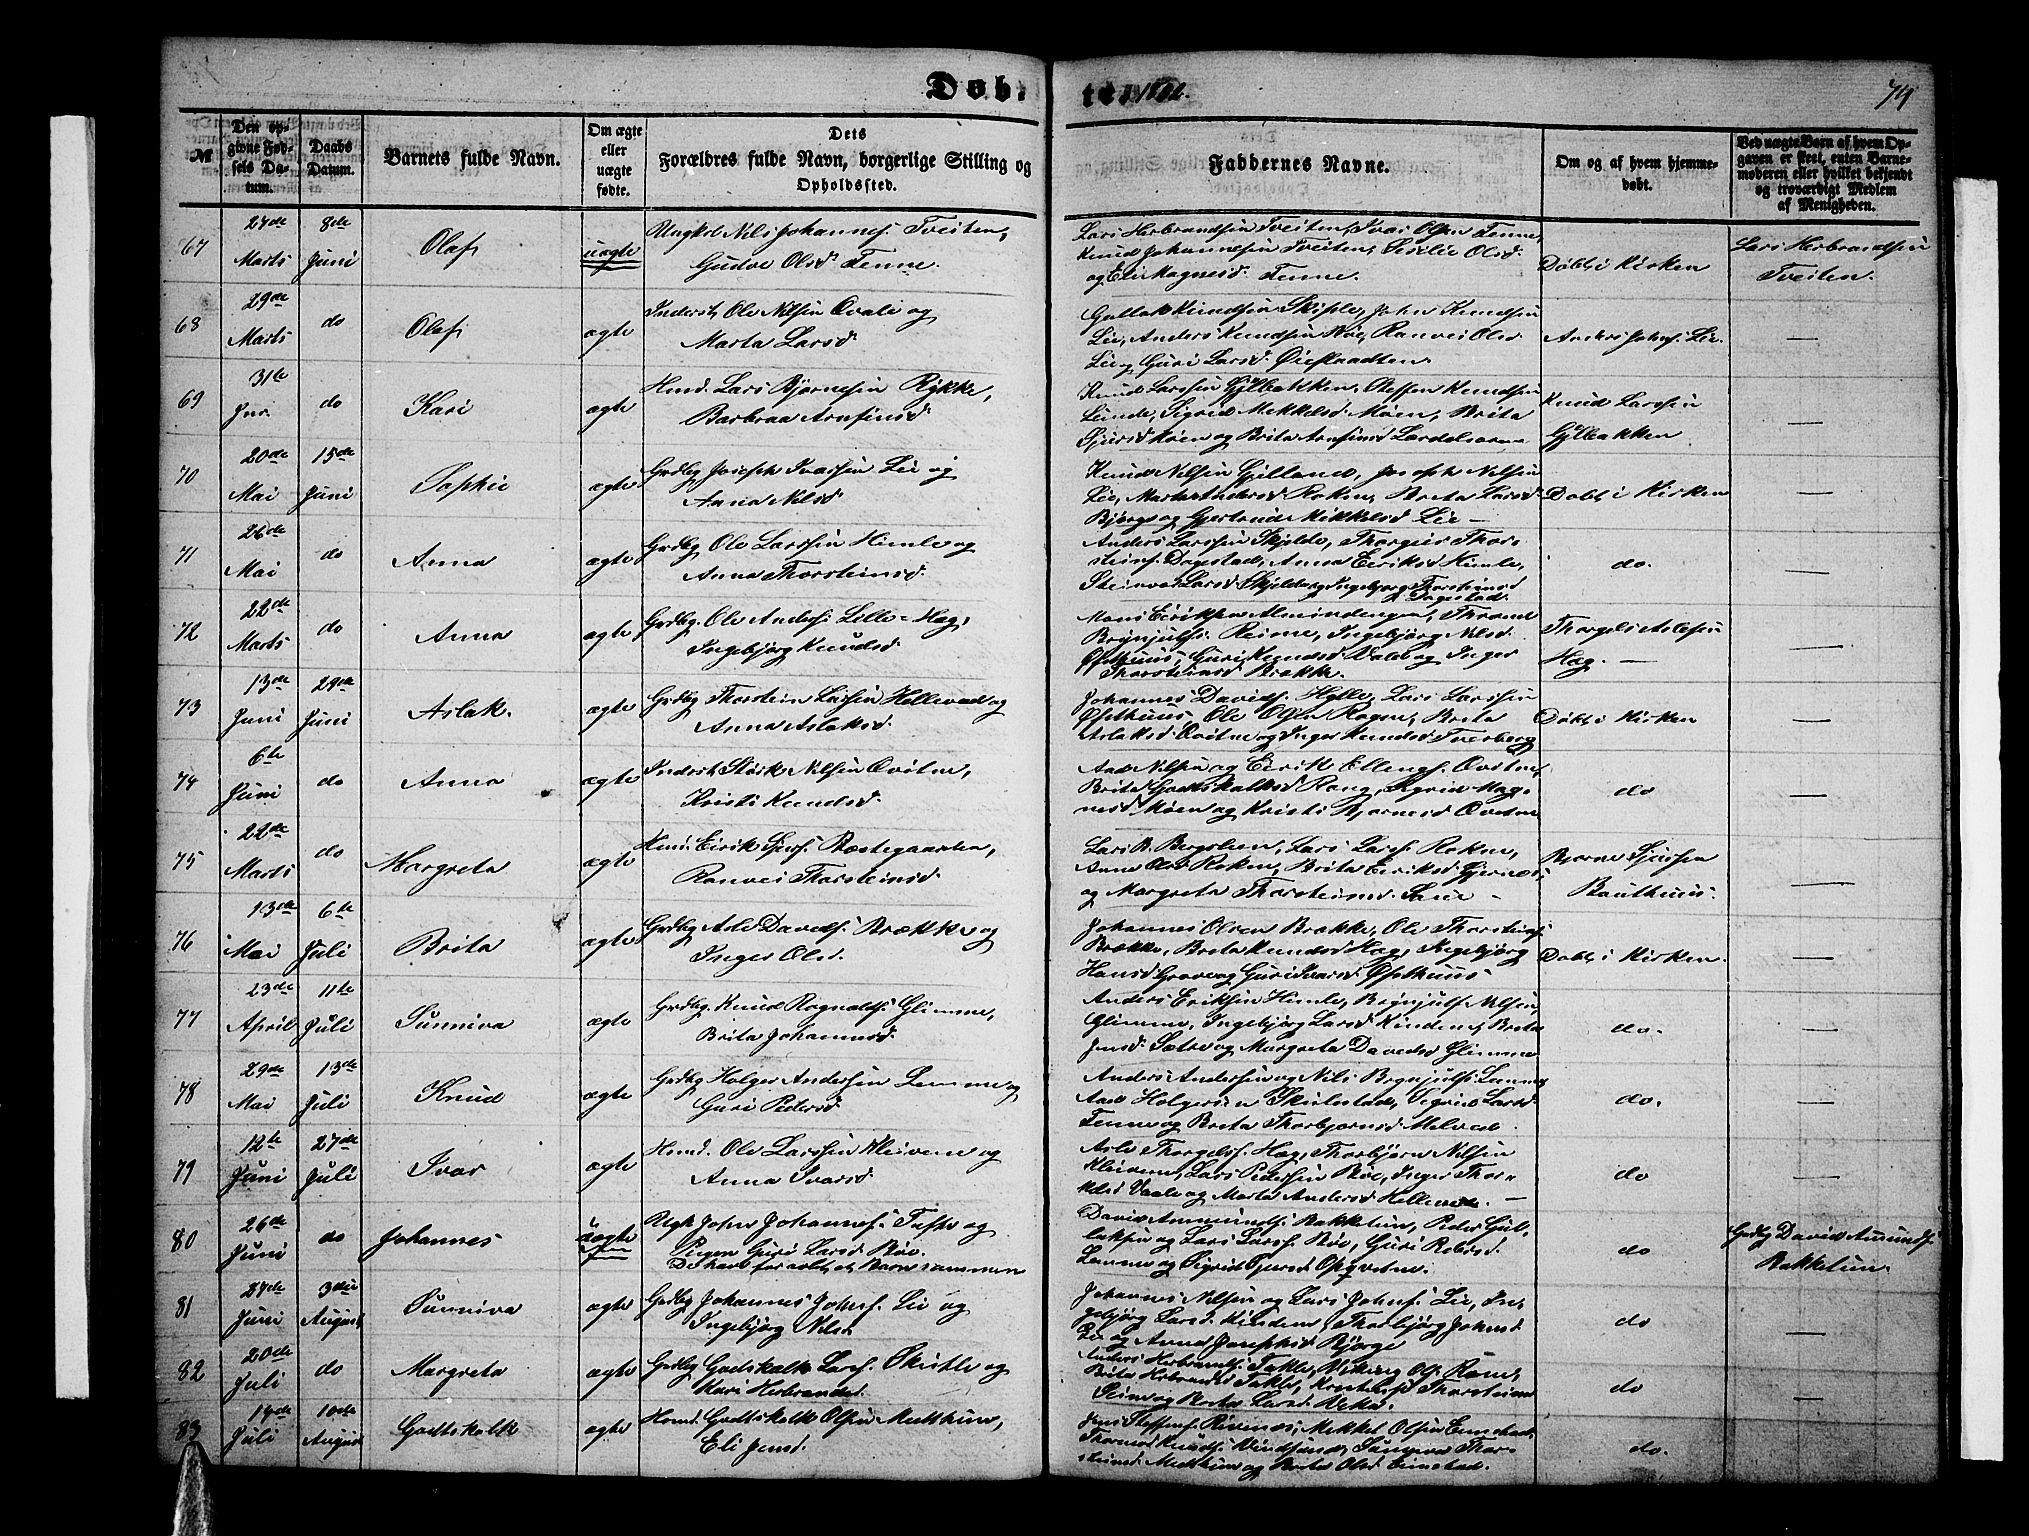 Døb-
te. 1862.
79
№
Den op-
givne Fød-
sels Da-
tum.
Daabs
Datum.
Barnets fulde Navn.
Om ægte
eller
uægte
fødte.
Dets
Forældres fulde Navn, borgerlige Stilling og
Opholdssted.
Faddernes Navne.
Om og af hvem hjemme-
døbt.
Ved uægte Børn af hvem Op-
gaven er skeet, enten Barne-
moderen eller hvilket bekjendt
og troværdigt Medlem
af Menigheden.
67
27de Marts
8de Juni
Olaf
uægte
Ungkrl Nils Johannes. Tveiten,
Gudve Olsd Tenne.
Lars Herbrandsen Tveiten, Ivar Olsen Tenne,
Knud Johannesen Tveiten,
og Eli Magnesd. Tenne.
Døbt i Kirken
Lars Herbrandsen
Tveiten.
68
29de Marts
do
Olaf
ægte
Inderst, Ole Nilsen Qvale og
Marta Larsd
John Knudsen
Lie, Anders Knudsen Bøe, Ranvei Olsd
Lie og Guri Larsd.
Anders Johns. Lie.
69
31te Jnr.
do
Kari
ægte
Hmd. Lars Bjørnesen Rykke,
Barbraa Arnfinsd
Knud Larssen Gjelbakken, Steffen Knudsen
Lunde, Sigrid Mikkelsd Møen, Brita
Sjursd Møen og Brita Arnfinsd
Knud Larssen
Gjelbakken
70
20de Mai
15de Juni
Sophie
ægte
Grdbg Joseph Ivarsen Lie og
Anna Nilsd
Knud Nilsen Gjelland, Joseph Nilsen
Lie, Marta Andersd Rokne, Brita Larsd
Bjørge og Gjertrud Mikkelsd Lie
Døbt i Kirken
71
26de Mai
do
Anna
ægte
Grdbg Ole Larssen Himle og
Anna Thorsteinsd.
Anders Larssen Skjelde, Thorgeir Thor-
steins. Dagestad, Anna Eiriksd Himle,
Steinvor Larsd. Skjelde og Ingebjørg Thorsteinsd
Dagestad.
do.
72
22de Marts
do
Anna
ægte
Grdbg. Ole Anders. Lille-Hæg,
Ingebjørg Knudsd.
Mons Eirikson Almindengen, Thrond
Brynjulfs. Reime, Ingebjørg Nilsd.
Østhuus, Guri Knudsd Vale og Inger
Thorsteinsd Brekke.
Thorgels Aslesen
Hæg.
73
13de Juni
29de Juni
Aslak.
ægte
Grdbg Thorstein Larssen Hellevad og
Anna Aslaksd.
Johannes Davids. Hylle, Lars Larssen
Østhuus, Ole Olsen Rogne, Brita
Aslaksd. Qvitne og Inger Knudsd Tvedberg
Døbt i Kirken
74
6te Juni
do
Anna
ægte
Inderst, Størk Nilsen Qvitne,
Kristi Knudsd.
Aad Nilsen og Eirik Ellings. Qvitne,
Brita Godtskalksd Rong, Sigrid Mag-
nesd Møen og Kristi Bjørnesd Qvitne
do
75
22de Marts
do
Margreta
ægte
Hmd. Eirik Sjurs. Prestegaarden,
Ranvei Thorsteinsd
Lars B. Bergslien, Lars Lars. Rokne,
Anna Olsd Rokne, Brita Eiriksd Gjerne
og Margreta Thorsteinsd. Saue
Bjørne Sjursen
Bauthuus.
76
13de Mai
6te Juli
Brita
ægte
Grdbg Asle Davids. Brække og
Inger Olsd.
Johannes Olsen Brække, Ole Thorsteins.
Brække, Brita Knudsd Hæg, Ingebjørg
Hansd Grove og Guri Ivarsd. Østhuus
Døbt i Kirken.
77
23de April
11te Juli
Sunniva
ægte
Grdbg. Knud Rognalds. Glimme,
Brita Johannesd
Anders Eriksen Himle, Brynjulf Nilsen
Glimme, Ingebjørg Larsd Kindem, Brita
Jensd. Sætre og Margreta Davidsd Glimme
do.
78
29de Mai
13de Juli
Knud
ægte
Grdbg Holger Andersen Lemme og
Guri Pedersd
Anders Andersen og Nils Brynjulfs. Lemme
Aad Holgersen Skulestad, Sigrid Larsd.
Tenne og Brita Thorbjørnsd Melved.
do.
79
12te Juni
27de Juli
Ivar
ægte
Hmd. Ole Larssen Kleivene og
Anna Ivarsd.
Asle Thorgels. Hæg, Thorbjørn Nilsen
Kleivene, Lars Pedersen Bøe, Inger Thor-
kelsd Vaale og Marta Andersd Hellene.
do
80
26de Juni
do
Johannes
uægte
Ugk. John Johannes. Tufte og
Pigen Guri Larsd Bøe.
De have før avlet et Barn sammen
David Amunds. Bakketun, Peder Gul-
laksen og Lars Lars. Bøe, Guri
Lemme og Sigrid Sjursd Opqvitne.
do
Grdbg David Amunds.
Bakketun.
81
27de Juni
3die August
Sunniva
ægte
Grdbg Johannes Johns. Lie og
Ingebjørg Nilsd
Johannes Nilsen og Lars Johns. Lie, In-
gebjørg Larsd. Kindem, Thorbjørg Johnsd
Lie og Anna Josephsd Bjørge
do
82
20de Juli
do
Margreta
ægte
Grdbg Godskalk Lars. Skiple og
Kari Herbrandsd.
Anders Herbrands. Takle, Viking Ols.
Brita Herbrandsd Takle, Thorsteinsd
Seim og Brita Larsd.
do
83
14de Juli
10de August
Godtskalk
ægte
Hmd. Godtskalk Olsen Medhuus,
Eli Jensd.
Jens Steffens. Rivenæs, Mikkel Olsen
Knuds. Sunniva Thor-
steinsd Medhuus og Brita Olsd
do.